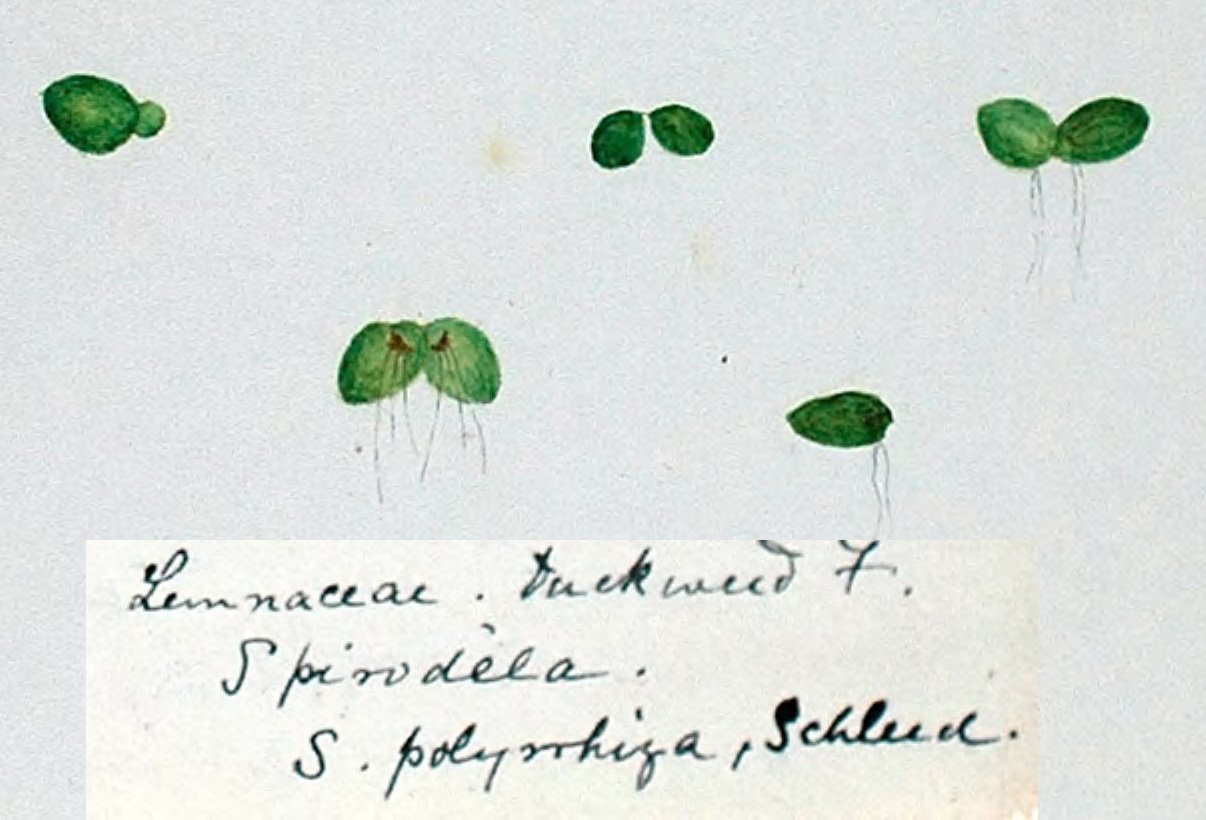 Lemnaceae. Duckweed F.
Spirodèla.
S. polyrrhiza, Schleid.